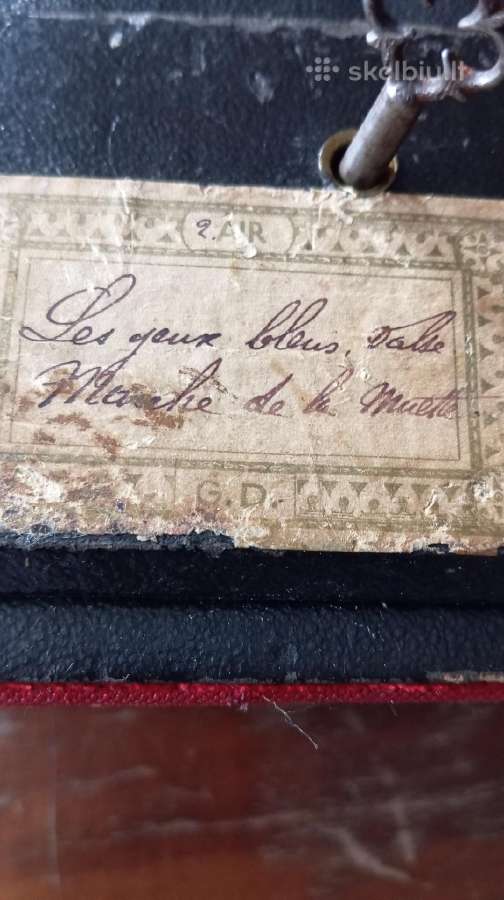 skelbiu.lt
2. AIR
Les yeux bleus, Valse
Marche de la Muette.
G.D.